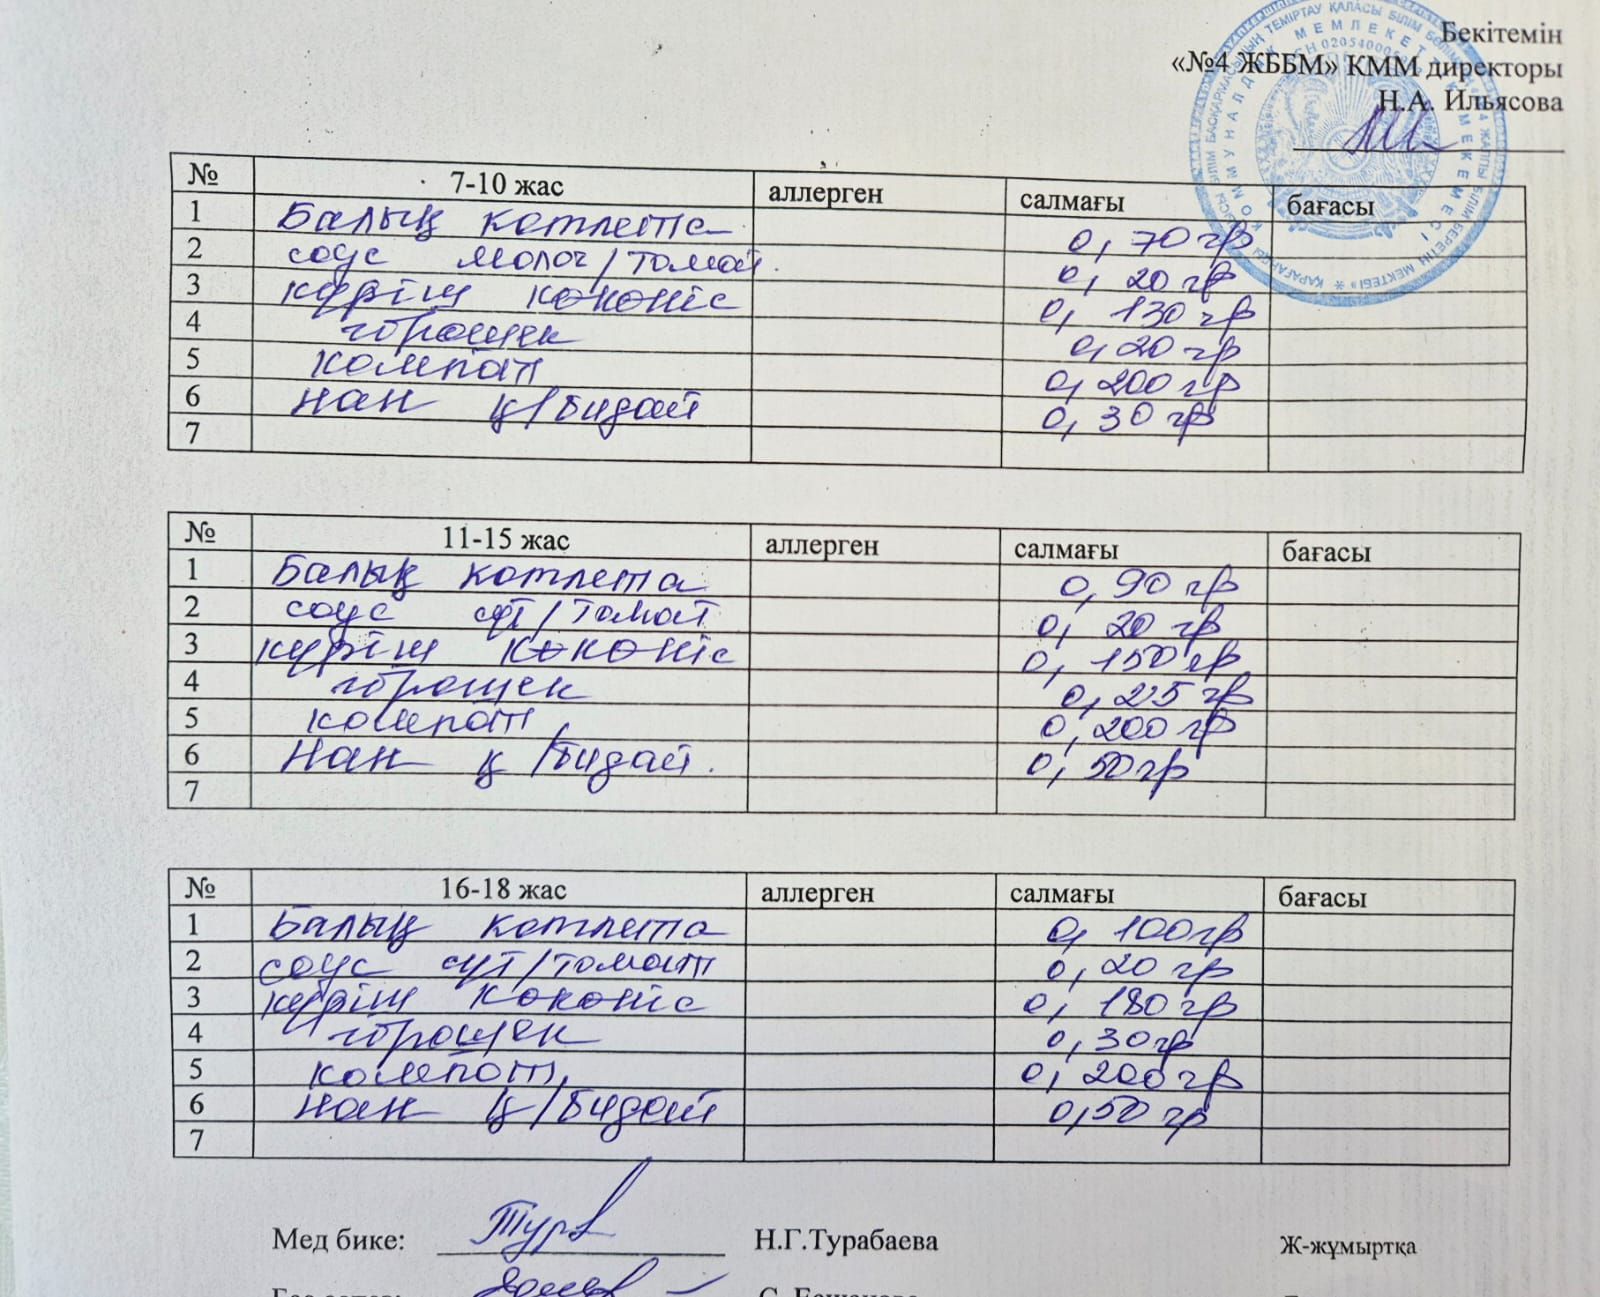 Бекітемін
«№4 ЖББМ» КММ директоры
Н.А. Ильясова
№ 7-10 жас аллерген салмағы бағасы
1 Балық котлета 0,70 гр
2 соус молоч/томат. 0,20 гр
3 күріш көкөніс 0,130 гр
4 горошек 0,20 гр
5 компот 0,200 гр
6 Нан қ/бидай 0,30 гр
7
№ 11-15 жас аллерген салмағы бағасы
1 Балық котлета 0,90 гр
2 соус сүт/томат 0,20 гр
3 күріш көкөніс 0,150 гр
4 горошек 0,25 гр
5 компот 0,200 гр
6 Нан қ/бидай. 0,50 гр
7
№ 16-18 жас аллерген салмағы бағасы
1 Балық котлета 0,100 гр
2 соус сүт/томат 0,20 гр
3 күріш көкөніс 0,180 гр
4 горошек 0,30 гр
5 компот, 0,200 гр
6 Нан қ/бидай 0,50 гр
7
Мед бике: Н.Г.Турабаева Ж-жұмыртқа